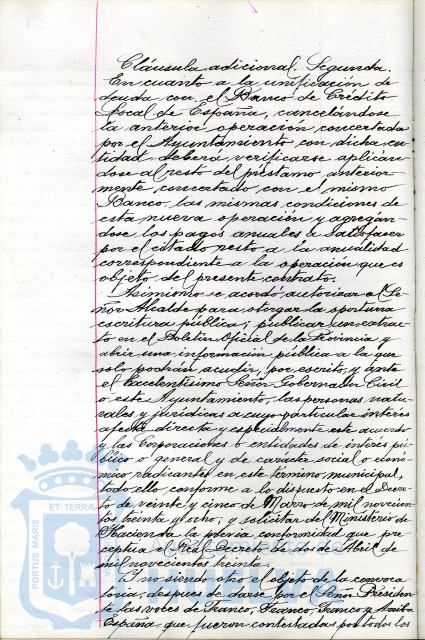 Cláusula adicional. Segunda.
En cuanto a la unificación de
deuda con el Banco de Crédito
Local de España, cancelándose
la anterior operación concertada
por el Ayuntamiento con dicha en-
tidad deberá verificarse aplicán-
dose al resto del préstamo anterior-
mente, concertado con el mismo
Banco, las mismas condiciones de
esta nueva operación y agregán-
dose los pagos anuales a satisfacer
por el citado resto a la anualidad
correspondiente a la operación que es
objeto del presente contrato.
Asimismo se acordó autorizar al Se-
ñor Alcalde para otorgar la oportuna
escritura pública; publicar un extrac-
to en el Boletín Oficial de la Provincia y
abrir una información pública a la que
solo podrán acudir, por escrito, y ante
el Excelentísimo Señor Gobernador Civil
o este Ayuntamiento, las personas natu-
rales y jurídicas a cuyo particular interés
afecte directa y especialmente este acuerdo
y las Corporaciones o entidades de interés pú-
blico o general y de carácter social o econó-
mico radicantes en este término municipal,
todo ello conforme a lo dispuesto en el Decre-
to de veinte y cinco de Marzo de mil novecien-
tos treinta y ocho; y solicitar del Ministerio de
Hacienda la previa conformidad que pre-
ceptua el Real Decreto de dos de Abril de
mil novecientos treinta.
Y no siendo otro el objeto de la convoca-
toria, despues de darse por el Señor Presiden-
te las voces de Franco, Franco, Franco y Arriba
España, que fueron contestadas por todos los
ET TERRÆ
PORTUS MARIS